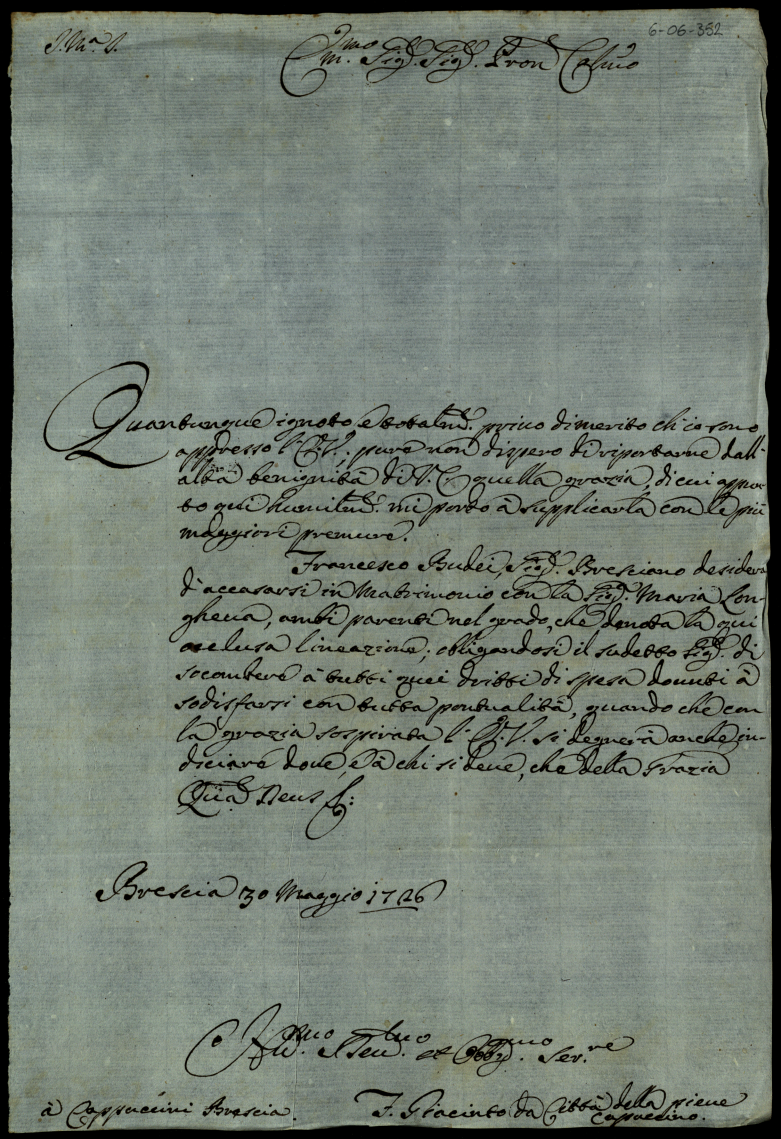 6-06-352
J. M.a J.
Em.mo Sig.r Sig.r Pron Col.mo
Quantunque ignoto, e total.te privo di merito ch'io sono
appresso l'E. V. pure non dispero di riportarne dall'
alta benignità di V. E. quella grazia, di cui appun-
to qui humilm.te mi porto à supplicarla con le più
maggiori premure.
Francesco Budei, Sig.r Bresciano desidera
d'accasarsi in Matrimonio con la Sig.ra Maria Lon-
ghena, ambi parenti nel grado, che denota la qui
acclusa lineazione; obligandosi il sudetto Sig.r di
socombere à tutti quei dritti di spesa dovuti à
sodisfarsi con tutta pontualità, quando che con
la grazia sospirata l'E. V. si degnerà anche in-
diciare dove, e à chi si deve, che della Grazia
Deus
Brescia 30 Maggio 1726
Hu.mo et Obb.mo Ser.re
à Cappuccini Brescia.
F. Giacinto da Città della pieve
Capuccino.